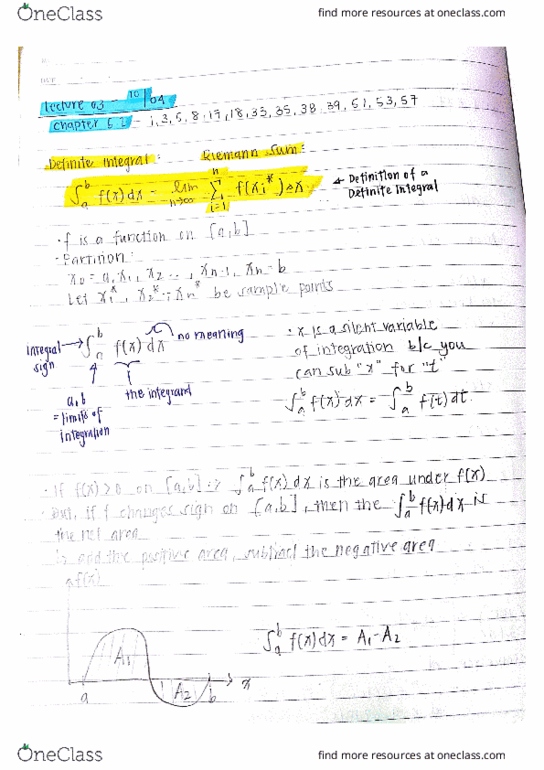 OneClass
find more resources at oneclass.com
lecture 03 - 10/04
Chapter 5.2 - 1, 3, 5, 8, 17, 18, 33, 35, 38, 39, 51, 53, 57
Definite Integral: Riemann Sum:
∫ₐᵇ f(x)dx = lim n→∞ Σ i=1 n f(xi*)Δx ← Definition of a Definite Integral
· f is a function on [a,b]
· Partition:
x₀ = a, x₁, x₂ ..., xn-1, xn = b
Let x₁*, x₂* ... xn* be sample points
Integral sign → ∫ₐᵇ f(x)dx no meaning
the integrand
a,b = limits of integration
· x is a silent variable
of integration b/c you
can sub "x" for "t"
∫ₐᵇ f(x)dx = ∫ₐᵇ f(t)dt
· If f(x)>0 on [a,b] => ∫ₐᵇ f(x)dx is the area under f(x)
· But, if f changes sign on [a,b], then the ∫ₐᵇ f(x)dx is
the net area
↳ add the positive area, subtract the negative area
f(x)
A₁
A₂
a
b
x
∫ₐᵇ f(x)dx = A₁-A₂
OneClass
find more resources at oneclass.com